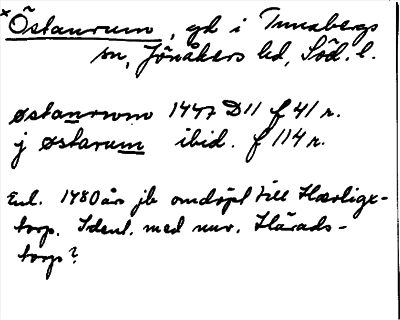 × Östanrum, gd i Tunabergs
sn, Jönåkers hd, Söd. l.
østanrwm 1447 D11 f 41 r.
j østarum ibid. f 114 r.
Enl. 1480 års jb omdöpt till Hærligx-
torp. Ident. med nuv. Härads-
torp?